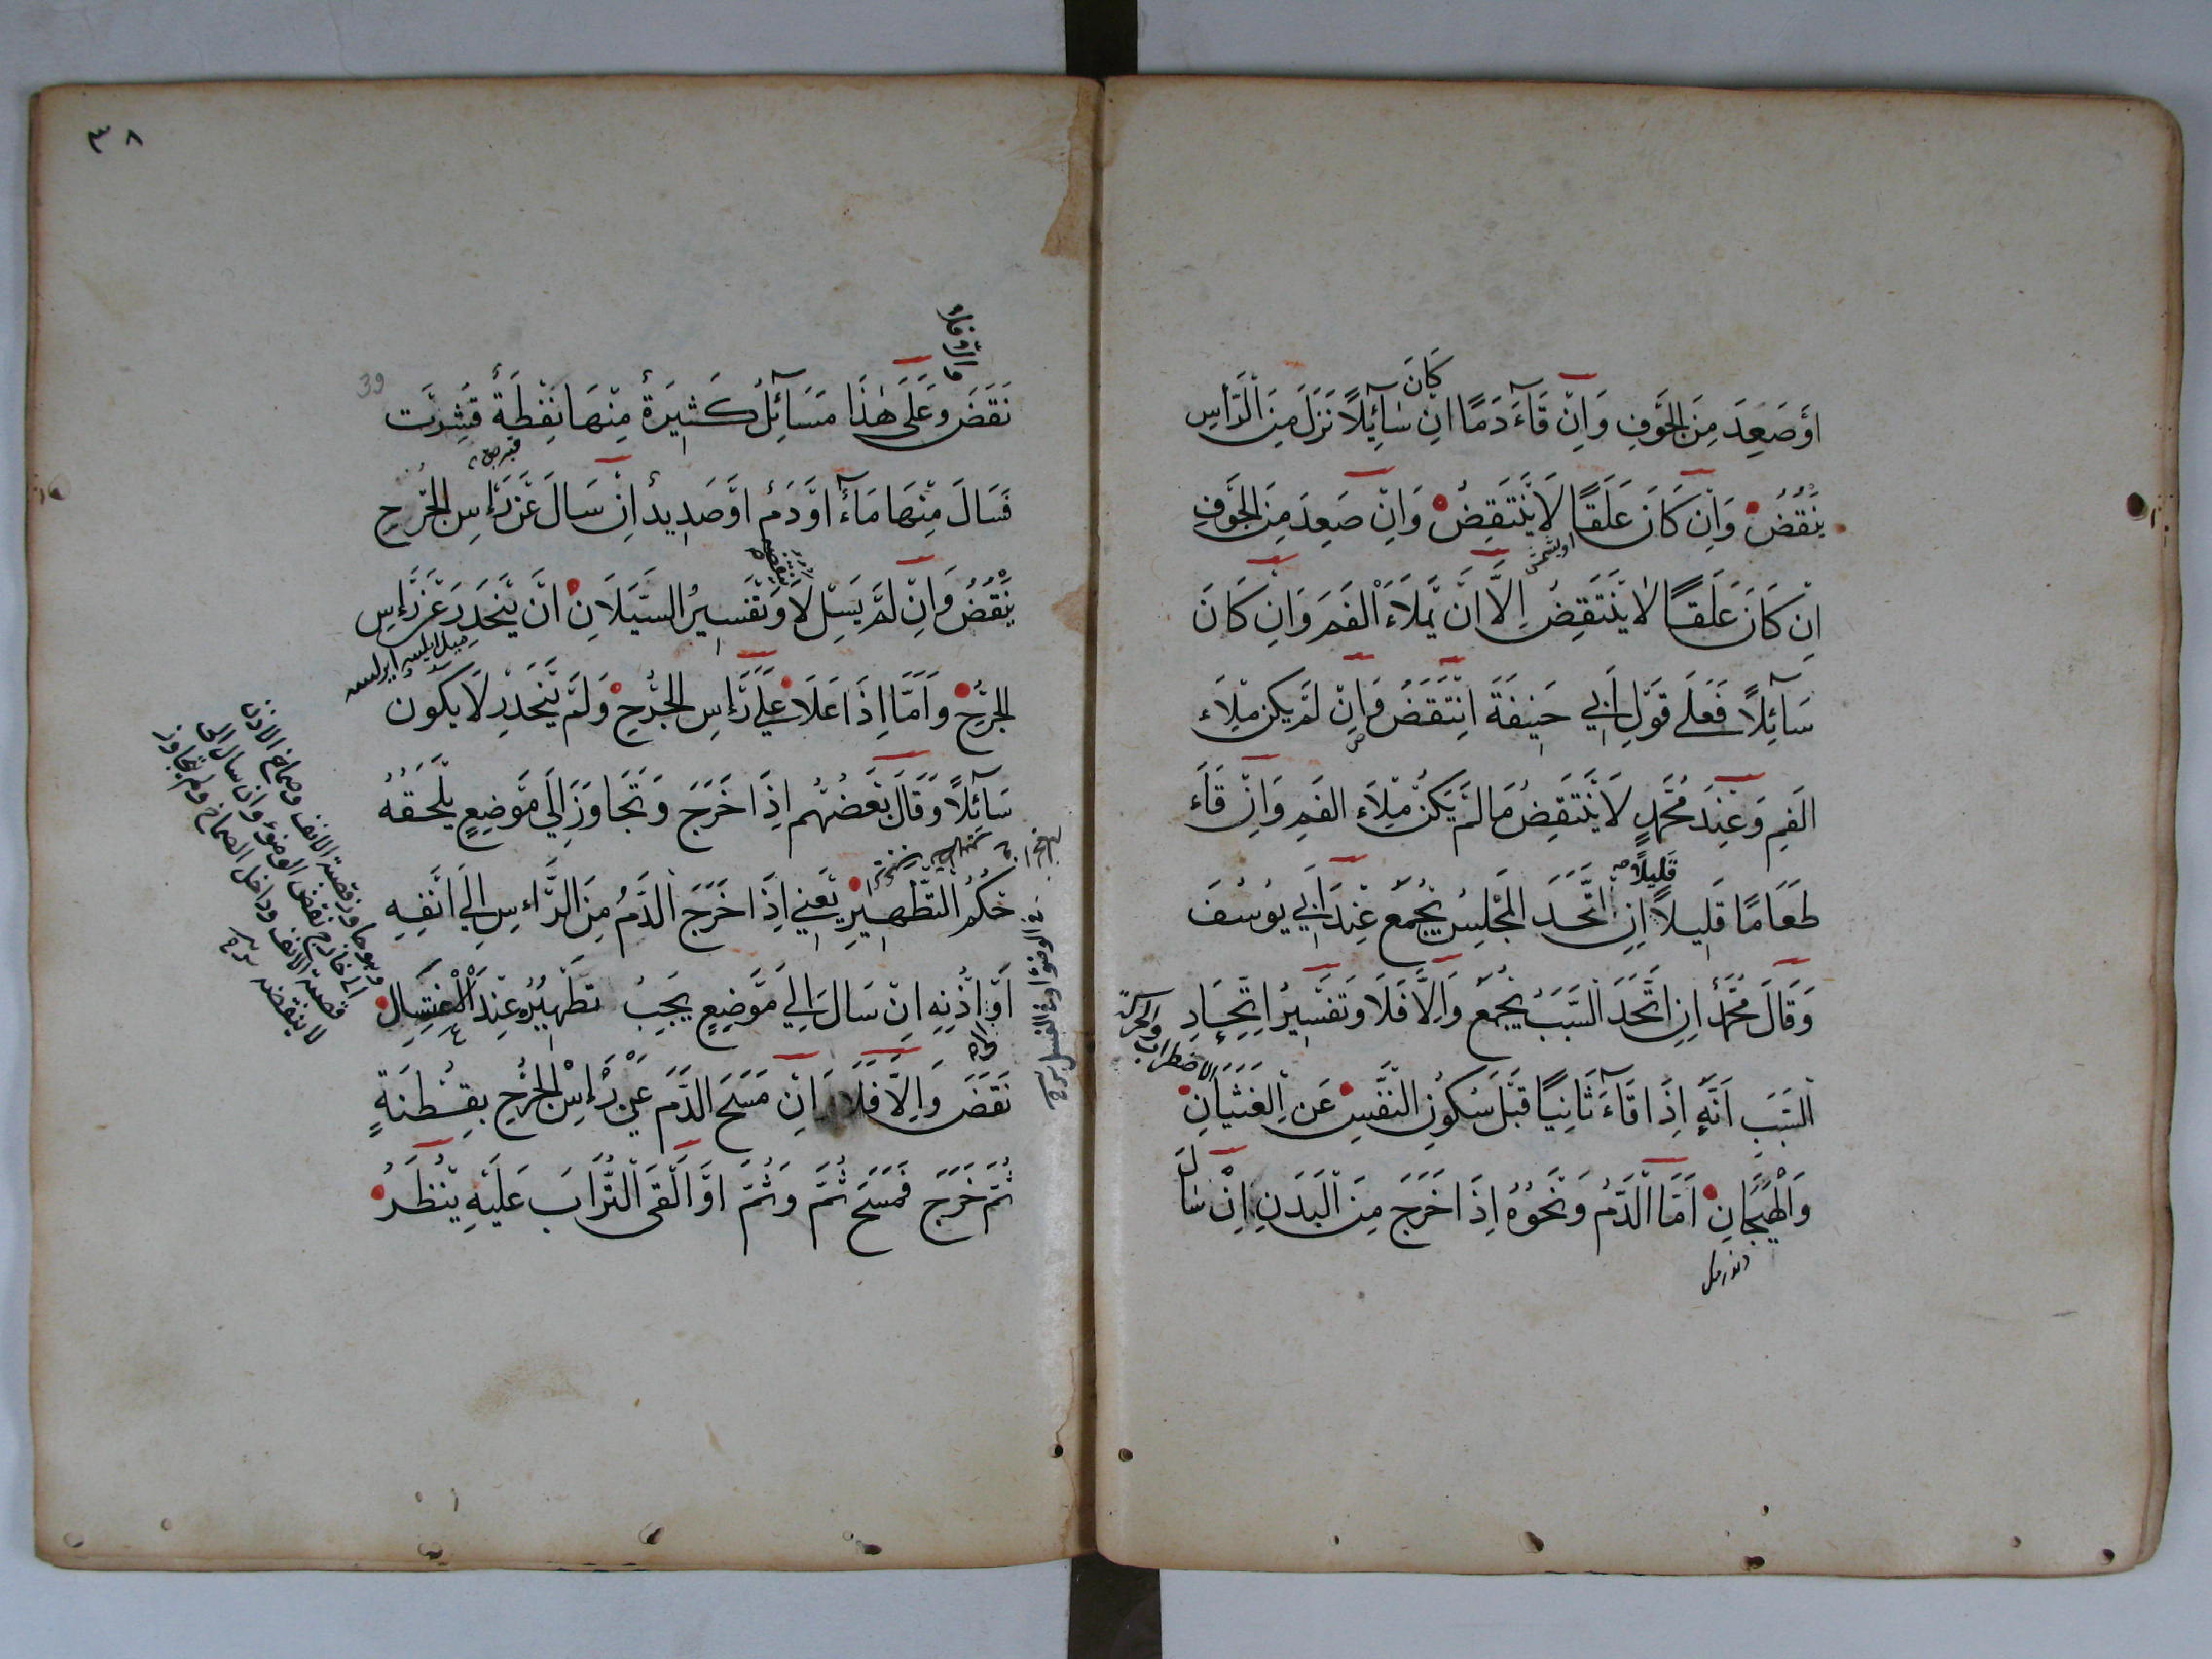 اَوْ صَعِدَ مِنَ الْجَوْفِ وَاِنْ قَآءَ دَمًا اِنْ كَانَ سَآئِلًا نَزَلَ مِنَ الرَّأْسِ
يَنْقُضُ وَاِنْ كَانَ عَلَقًا لَا يَنْتَقِضُ وَاِنْ صَعِدَ مِنَ الْجَوْفِ
اِنْ كَانَ عَلَقًا لَا يَنْتَقِضُ اِلَّا اَنْ يَمْلَاَءَ الْفَمَ وَاِنْ كَانَ
سَآئِلًا فَعَلَى قَوْلِ اَبِي حَنِيفَةَ اِنْتَقَضَ وَاِنْ لَمْ يَكُنْ مِلَاءَ
الْفَمِ وَعِنْدَ مُحَمَّدٍ لَا يَنْتَقِضُ مَا لَمْ يَكُنْ مِلَاءَ الْفَمِ وَاِنْ قَاءَ
طَعَامًا قَلِيلًا قَلِيلًا اِنِ اتَّحَدَ الْمَجْلِسُ يُجْمَعُ عِنْدَ اَبِي يُوسُفَ
وَقَالَ مُحَمَّدٌ اِنِ اتَّحَدَ السَّبَبُ يُجْمَعُ وَاِلَّا فَلَا وَتَفْسِيرُ اِتِّحَادِ
السَّبَبِ اَنَّهُ اِذَا قَآءَ ثَانِيًا قَبْلَ سُكُونِ النَّفْسِ عَنِ الْغَثَيَانِ
وَالْهَيَجَانِ اَمَّا الدَّمُ وَنَحْوُهُ اِذَا خَرَجَ مِنَ الْبَدَنِ اِنْ سَالَ
الاضطراب والحركة
٣٨
39
نَقَضَ وَعَلَى هٰذَا مَسَآئِلُ كَثِيرَةٌ مِنْهَا نَفْطَةٌ قُشِرَتْ
فَسَالَ مِنْهَا مَآءٌ اَوْ دَمٌ اَوْ صَدِيدٌ اِنْ سَالَ عَنْ رَأْسِ الْجُرْحِ
يَنْقُضُ وَاِنْ لَمْ يَسِلْ لَا وَتَفْسِيرُ السَّيَلَانِ اَنْ يَنْحَدِرَ عَنْ رَأْسِ
الْجُرْحِ وَاَمَّا اِذَا عَلَا عَلَى رَأْسِ الْجُرْحِ وَلَمْ يَنْحَدِرْ لَا يَكُونُ
سَآئِلًا وَقَالَ بَعْضُهُمْ اِذَا خَرَجَ وَتَجَاوَزَ اِلَى مَوْضِعٍ يَلْحَقُهُ
حُكْمُ التَّطْهِيرِ يَعْنِي اِذَا خَرَجَ الدَّمُ مِنَ الرَّاْسِ اِلَى اَنْفِهِ
اَوْ اُذُنِهِ اِنْ سَالَ اِلَى مَوْضِعٍ يَجِبُ تَطْهِيرُهُ عِنْدَ الْاِغْتِسَالِ
نَقَضَ وَاِلَّا فَلَا وَاِنْ مَسَحَ الدَّمَ عَنْ رَأْسِ الْجُرْحِ بِقُطْنَةٍ
ثُمَّ خَرَجَ فَمَسَحَ ثُمَّ وَثُمَّ اَوْ اَلْقَى التُّرَابَ عَلَيْهِ يُنْظَرُ
وهو ما وراء قصبة الانف وصماخ الاذن
اى خارج نقض الوضوء وان سال الى
قصبة الانف وداخل الصماخ ولم يتجاوز
لا ينقضه